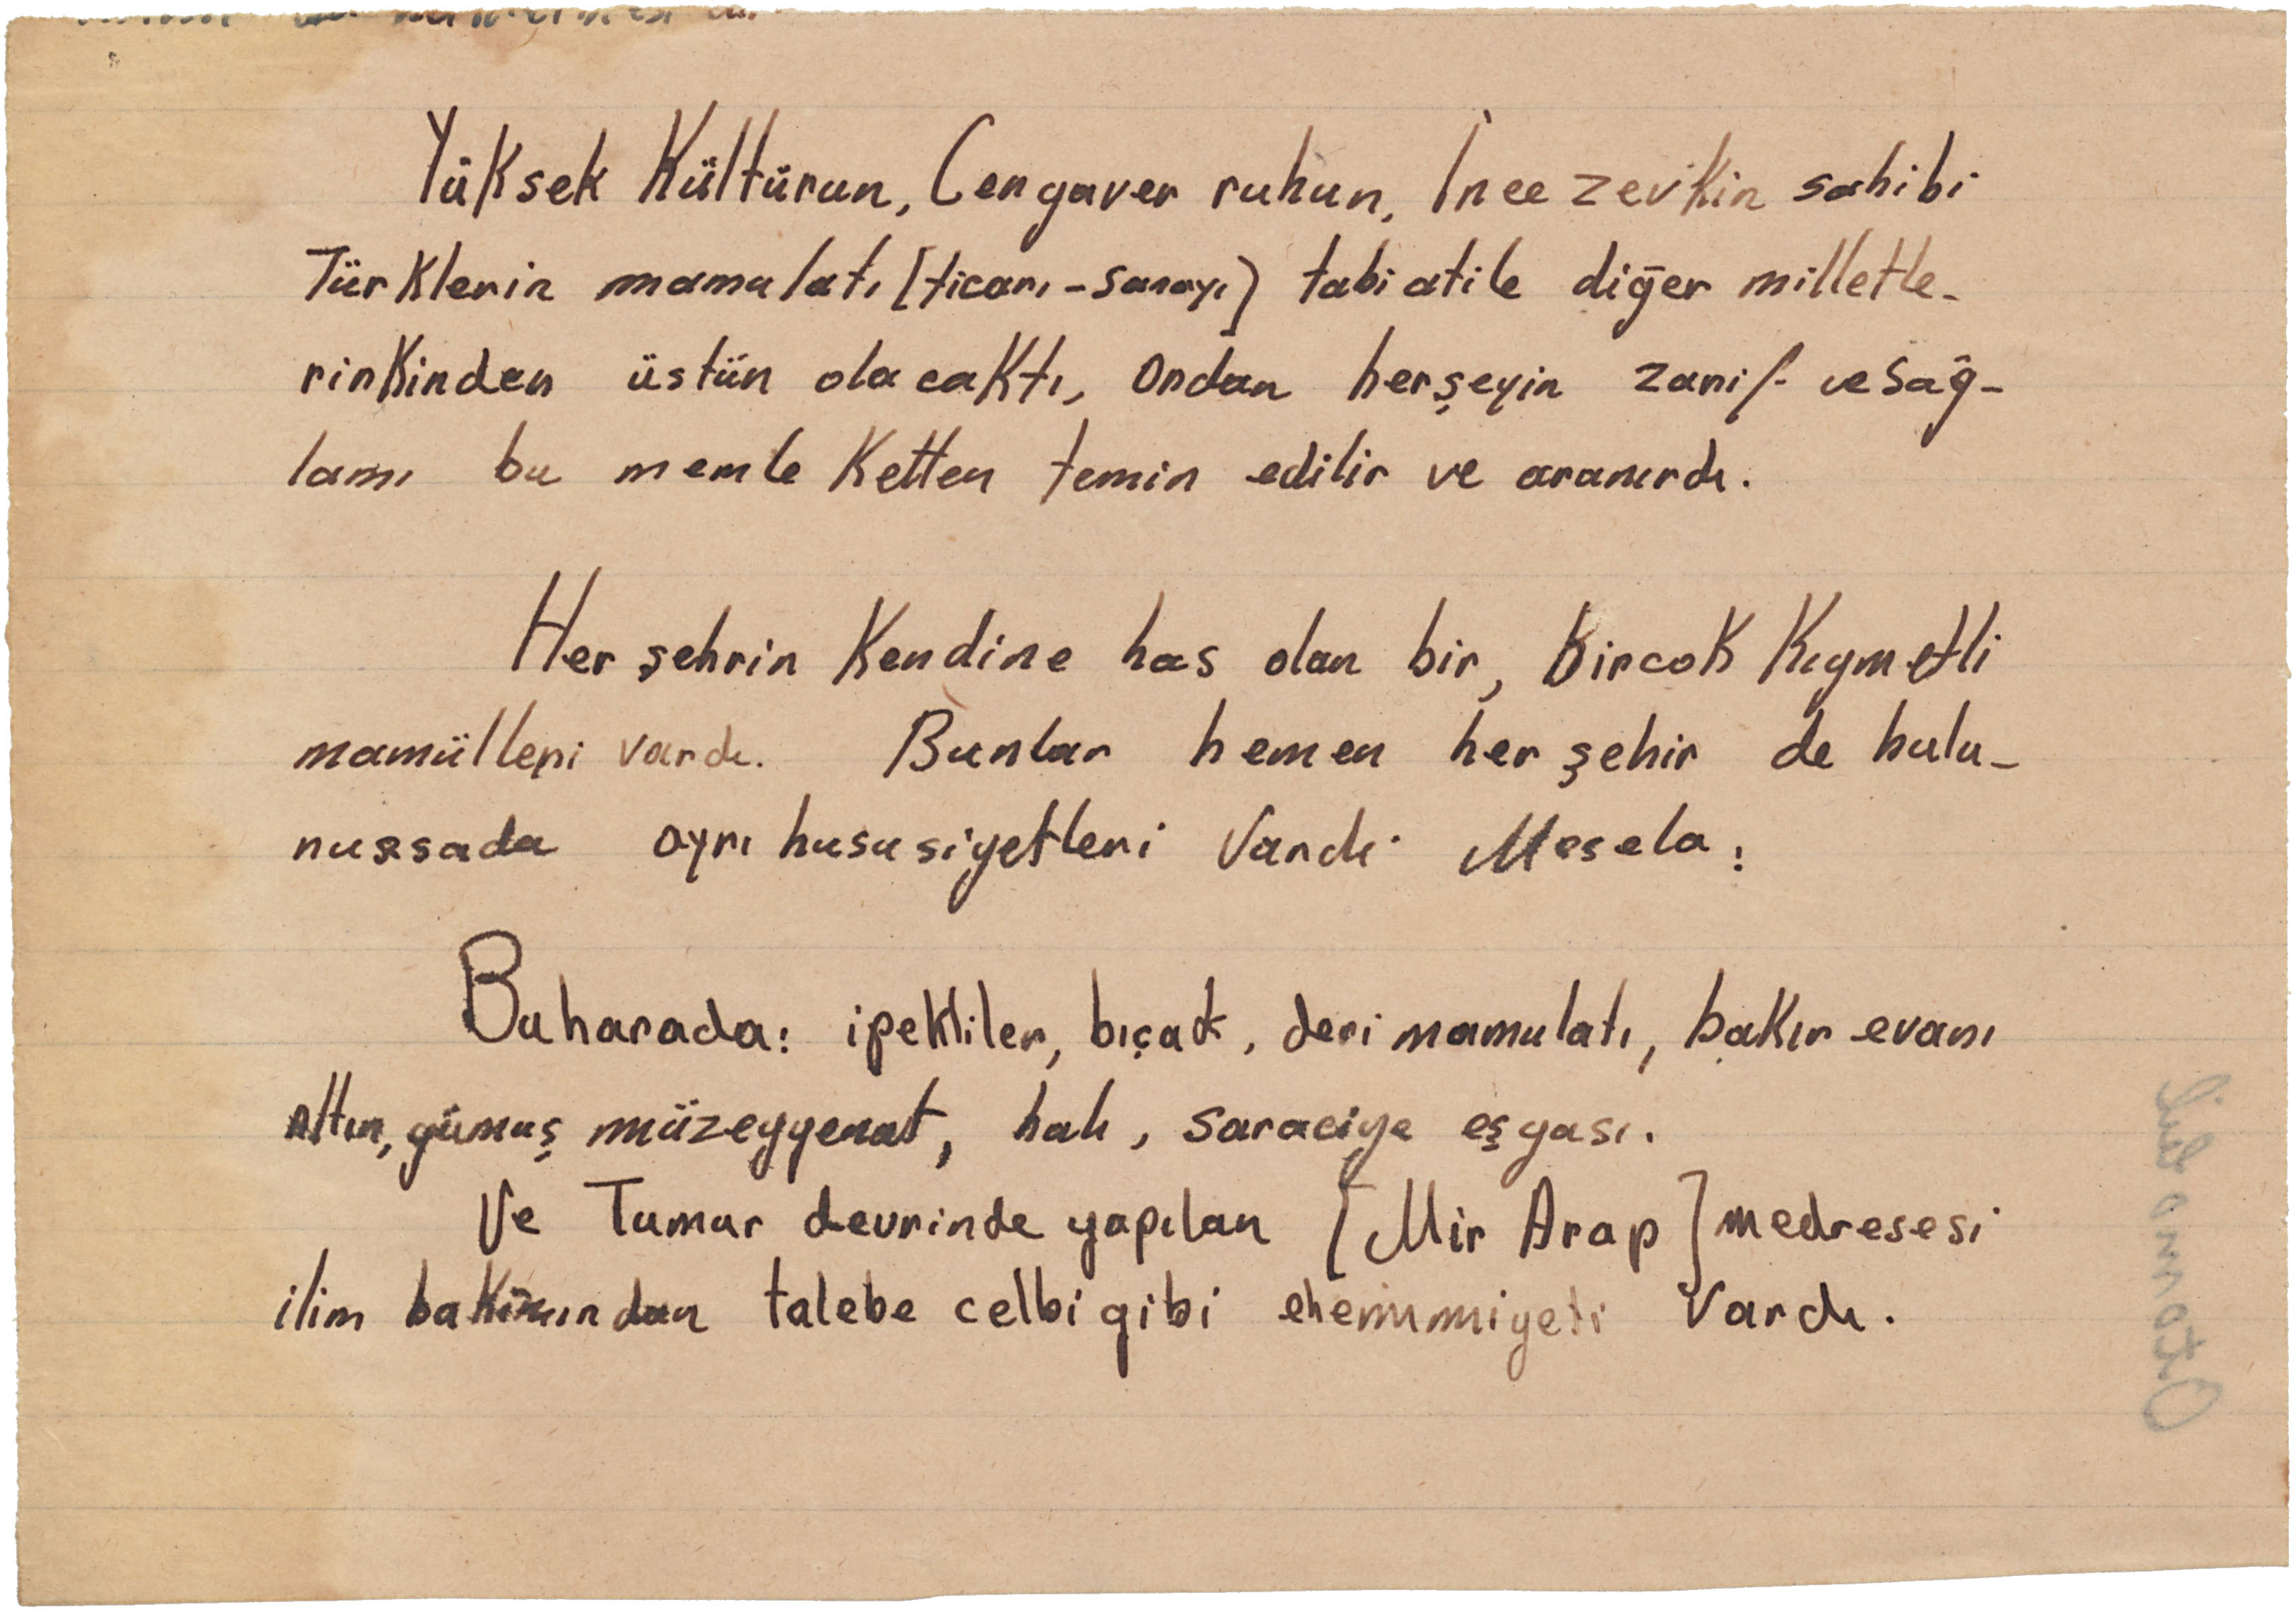 Yüksek Kültürun, Cengaver ruhun, İnce zevkin sahibi
Türklerin mamulatı [ticarı-sanayı) tabiatile diğer milletle-
rinkinden üstün olacaktı, ondan herşeyin zarif ve sağ-
lamı bu memleketten temin edilir ve aranırdı.
Her şehrin kendine has olan bir, bircok kıymetli
mamülleri vardı. Bunlar hemen her şehir de bulu-
nussada ayrı hususiyetleri vardı. Mesela:
Buharada: ipekliler, bıçak, deri mamulatı, bakır evanı
altın, gümuş müzeyyenat, halı, saraciye eşyası.
Ve Tumur devrinde yapılan [Mir Arap] medresesi
ilim bakımından talebe celbi gibi ehemmiyeti vardı.